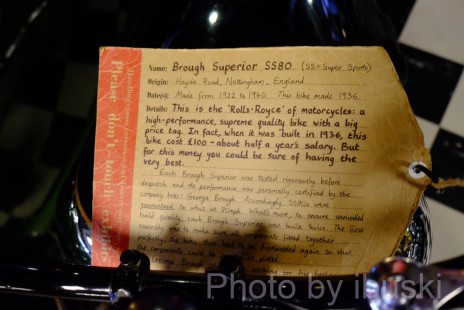 Name: Brough Superior SS80 (SS = Super Sports)
Origin: Haydn Road, Nottingham, England
Date(s): Made from 1922 to 1940. This bike made 1936
Details: This is the 'Rolls-Royce' of motorcycles: a
high-performance, supreme quality bike with a big
price tag. In fact, when it was built in 1936, this
bike cost £100 - about half a year's salary. But
for this money you could be sure of having the
very best.
Each Brough Superior was tested rigorously before
dispatch and its performance was personally certified by the
company boss: George Brough. Accordingly, SS80s were
guaranteed to whizz at 80mph. What's more, to ensure unrivalled
build quality, each Brough Superior was built twice. The first
assembly was to make sure all components fitted together
the bike then had to be dismantled again so that
the components could be
George Brough
Please don't touch exhibits
Photo by ibuski